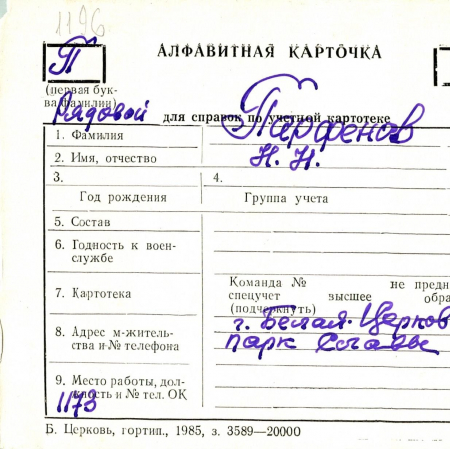 1196
АЛФАВИТНАЯ КАРТОЧКА
П
(первая бук-
ва фамилии)
Рядовой для справок по учетной картотеке
1. Фамилия Парфенов
2. Имя, отчество Н. Н.
3. 4.
Год рождения Группа учета
5. Состав
6. Годность к воен-
службе
Команда № не предн
7. Картотека спецучет высшее обра
(подчеркнуть)
г. Белая-Церков
8. Адрес м-житель- парк Славы
ства и № телефона
9. Место работы, дол-
жность и № тел. ОК
1173
Б. Церковь, гортип., 1985, з. 3589—20000